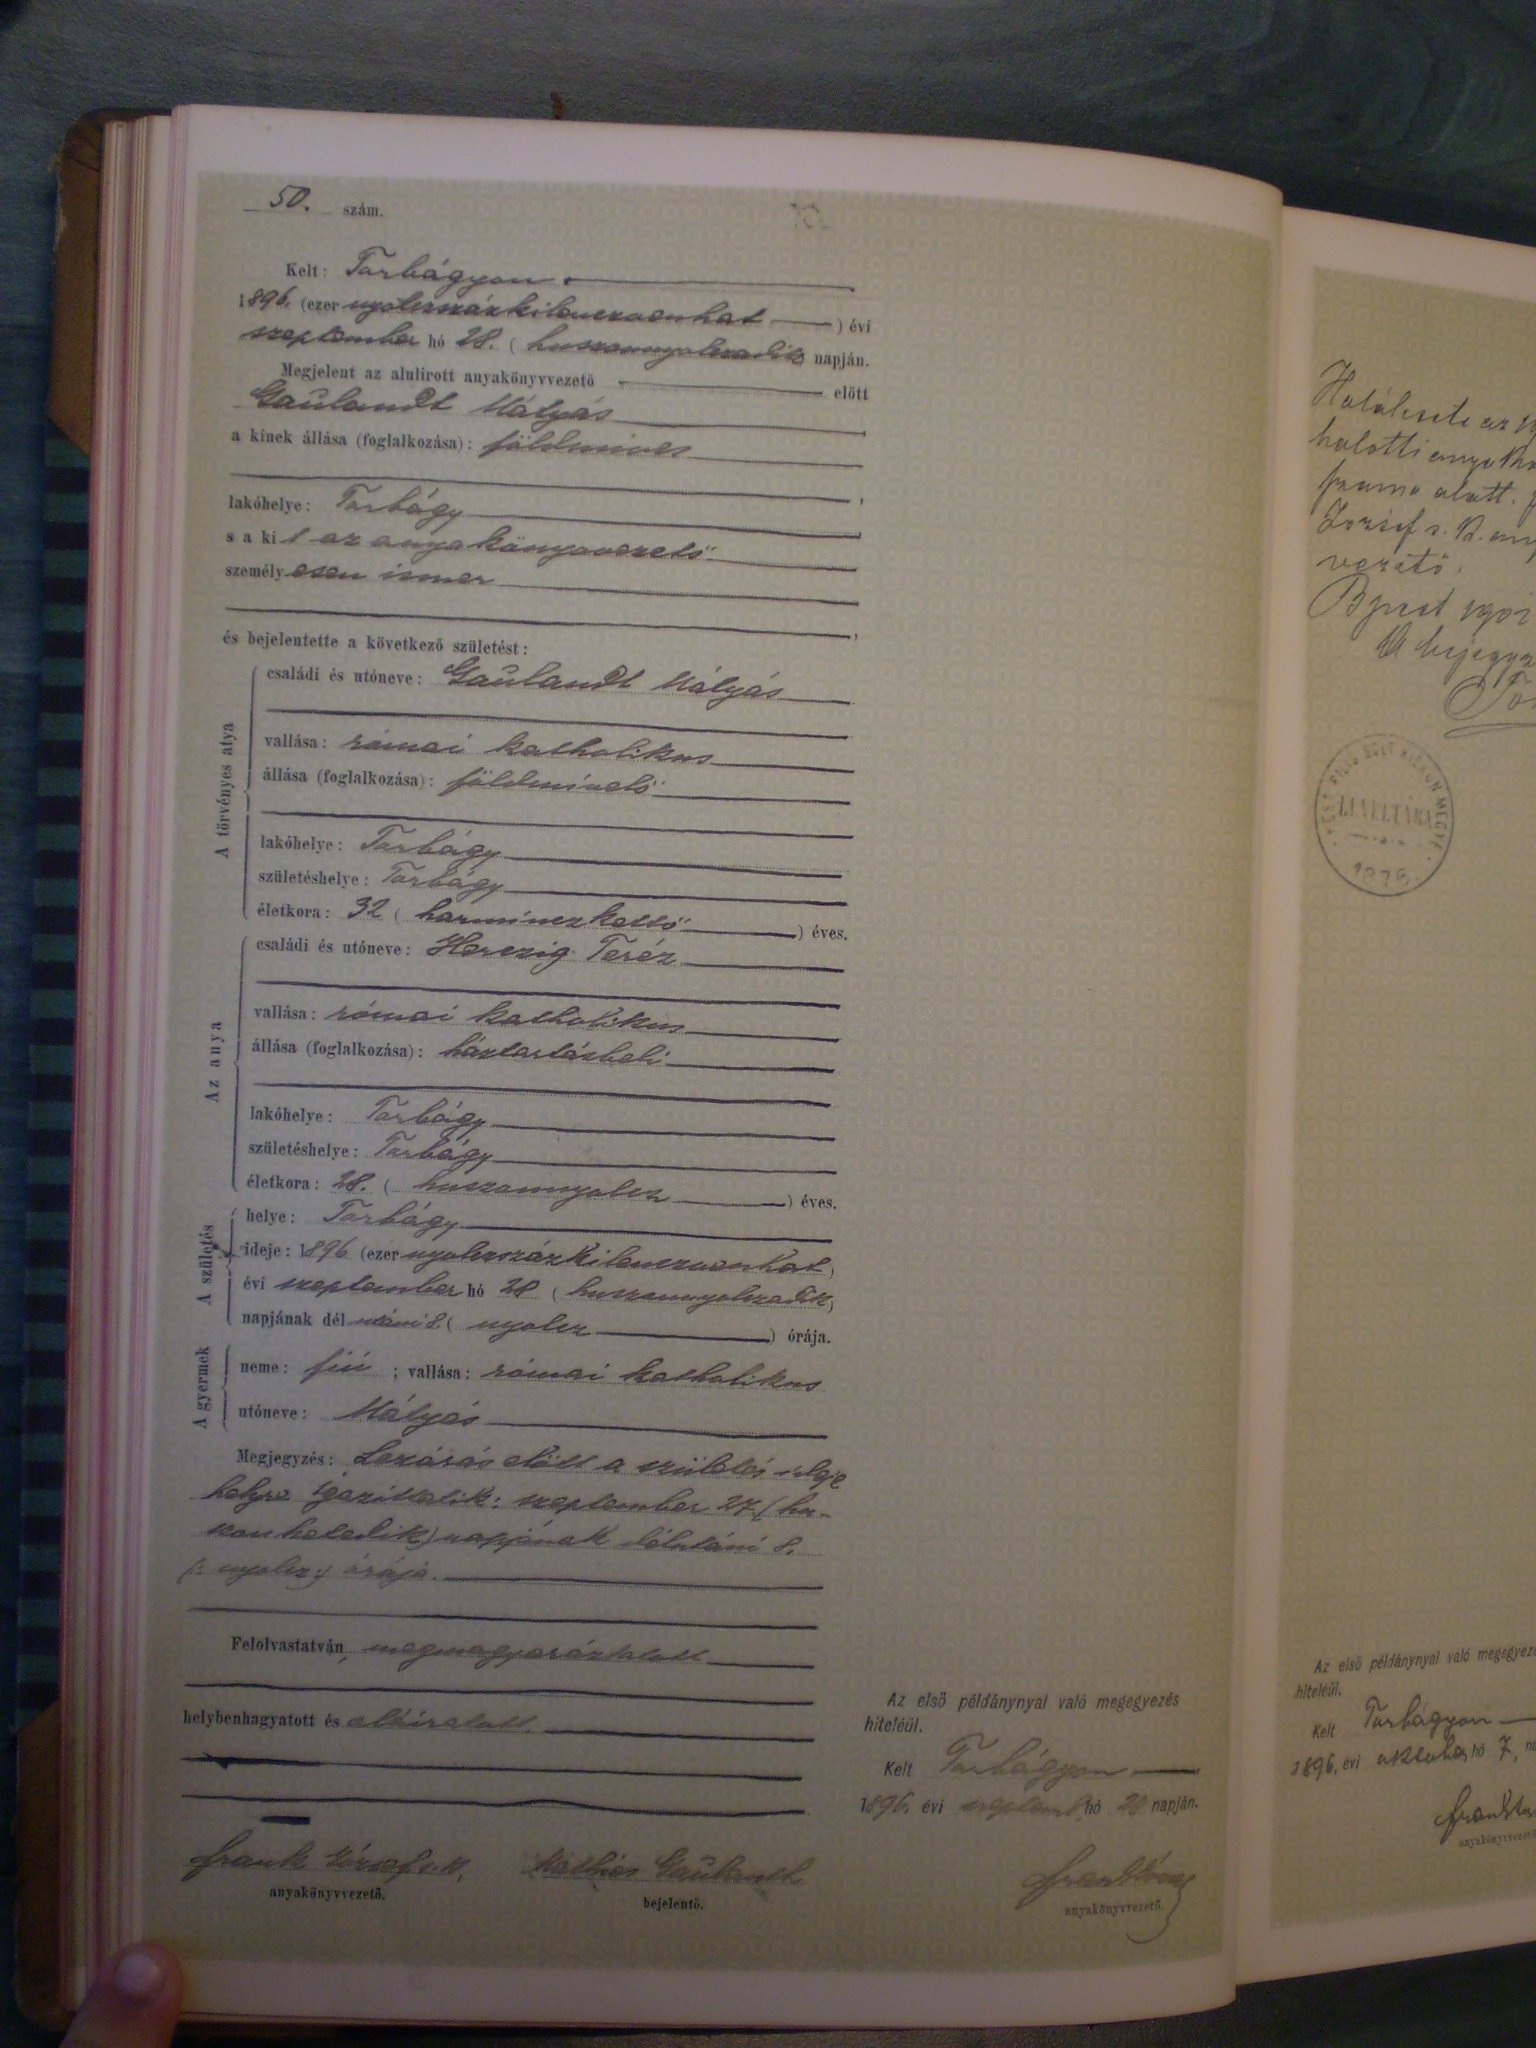 50. szám.
Kelt: Torbágyon
1896. (ezer nyolczszázkilenczvenhat) évi
szeptember hó 28. (huszonnyolczadik) napján.
Megjelent az alulirott anyakönyvvezető előtt
Gaulandt Mátyás,
a kinek állása (foglalkozása): földmives
,
lakóhelye: Torbágy,
s a kit az anyakönyvvezető
személyesen ismer
,
és bejelentette a következő születést:
A törvényes atya
családi és utóneve: Gaulandt Mátyás
vallása: római katholikus
állása (foglalkozása): földmivelő
lakóhelye: Torbágy
születéshelye: Torbágy
életkora: 32 (harminczkettő) éves.
Az anya
családi és utóneve: Herczig Teréz
vallása: római katholikus
állása (foglalkozása): háztartásbeli
lakóhelye: Torbágy
születéshelye: Torbágy
életkora: 28. (huszonnyolcz) éves.
A születés
helye: Torbágy
ideje: 1896 (ezer nyolczszázkilenczvenhat)
évi szeptember hó 28 (huszonnyolczadik)
napjának délutáni 8. (nyolcz) órája.
A gyermek
neme: fiú; vallása: római katholikus
utóneve: Mátyás
Megjegyzés: Lezárás előtt a születés ideje
helyre igazittatik: szeptember 27. (hu-
szonhetedik) napjának délutáni 8.
(: nyolcz :) órája.
Felolvastatván, megmagyaráztatott
helybenhagyatott és aláiratott.
Frank József s.k.
anyakönyvvezető.
Mathias Gaulandt
bejelentő.
Az első példánynyal való megegyezés
hiteléül.
Kelt Torbágyon
1896. évi szeptemb. hó 28 napján.
Frank József
anyakönyvvezető.
halotti
alatt.
József s. k.
vezető.
Bpest
A
MEGYE
LEVÉLTÁRA
1876
Az első példánynyal való
hiteléül.
Kelt Torbágyon
1896. évi október hó 7,
anyakönyvvezető